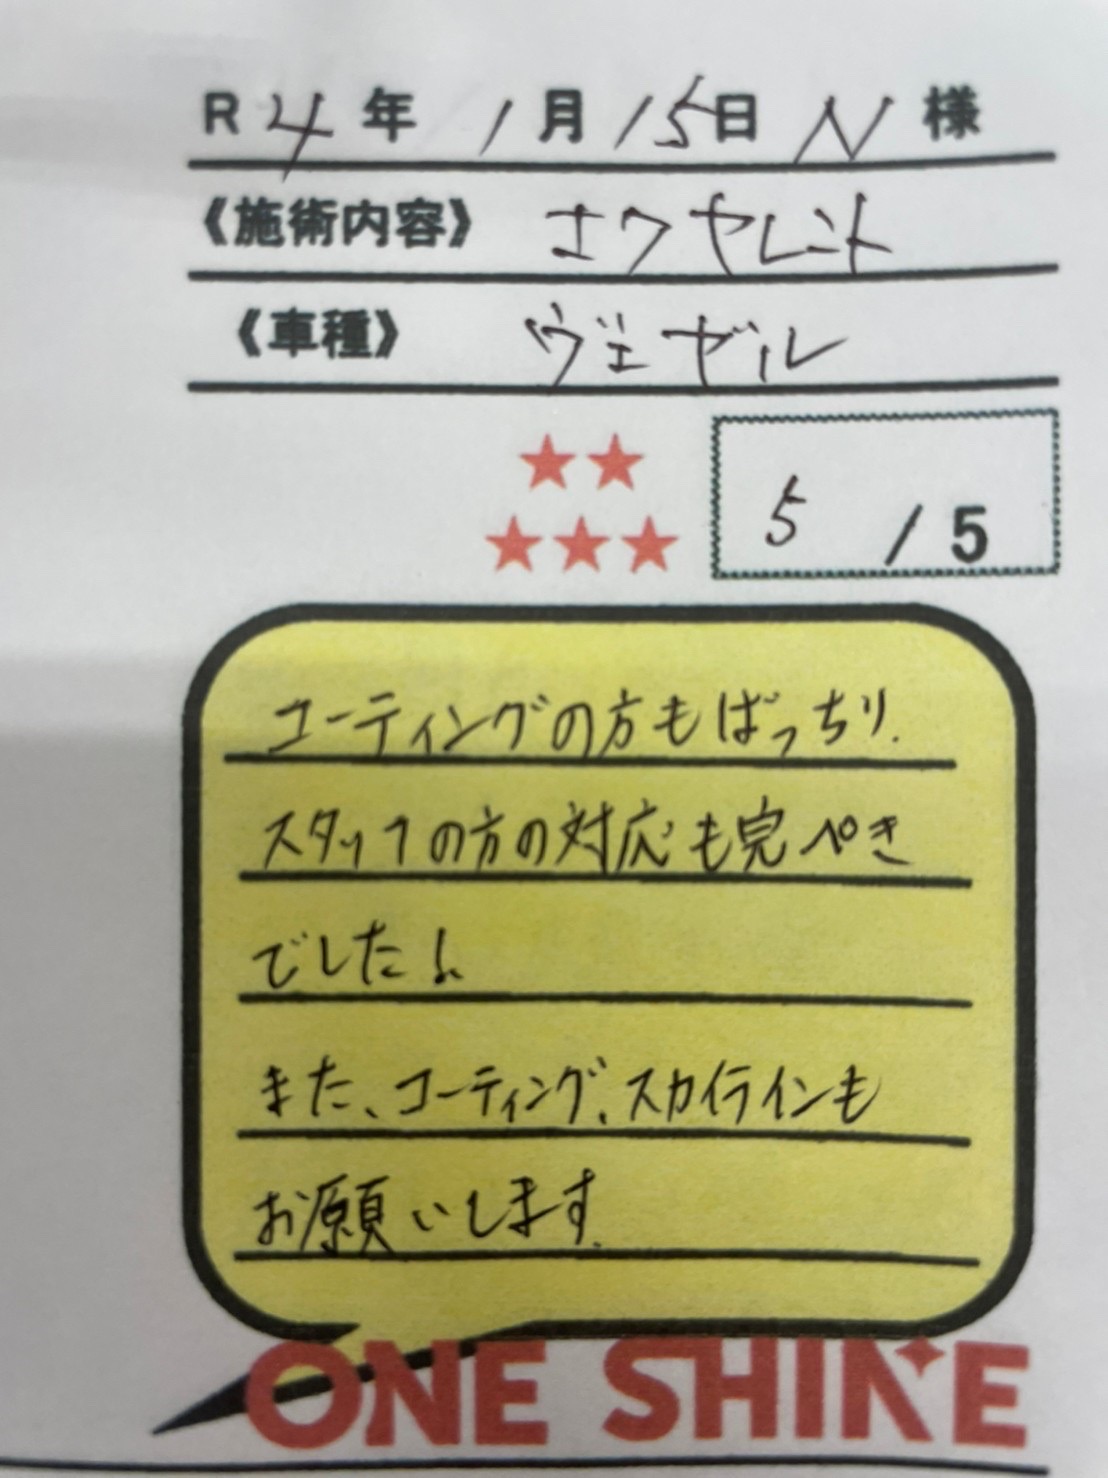 R 4 年 1 月 15 日 N 様
《施術内容》 エクヤレント
《車種》 ヴェゼル
★★
★★★
5 / 5
コーティングの方もばっちり.
スタッフの方の対応も完ぺき
でした!
また、コーティング、スカイラインも
お願いします.
ONE SHINE